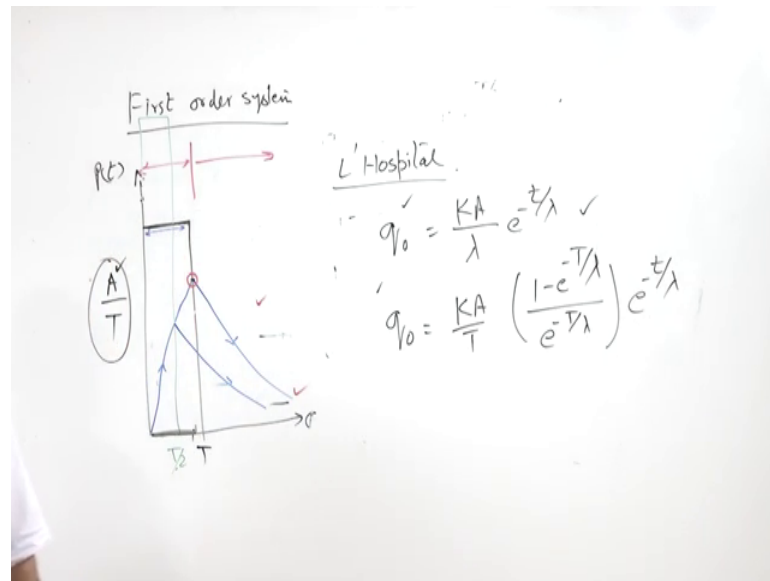 First order system
P(t)
L'Hospital
q₀ = KA/λ e^(-t/λ) ✓
q₀ = KA/T ((1-e^(-T/λ))/e^(-T/λ)) e^(-t/λ)
A/T
T/2 T